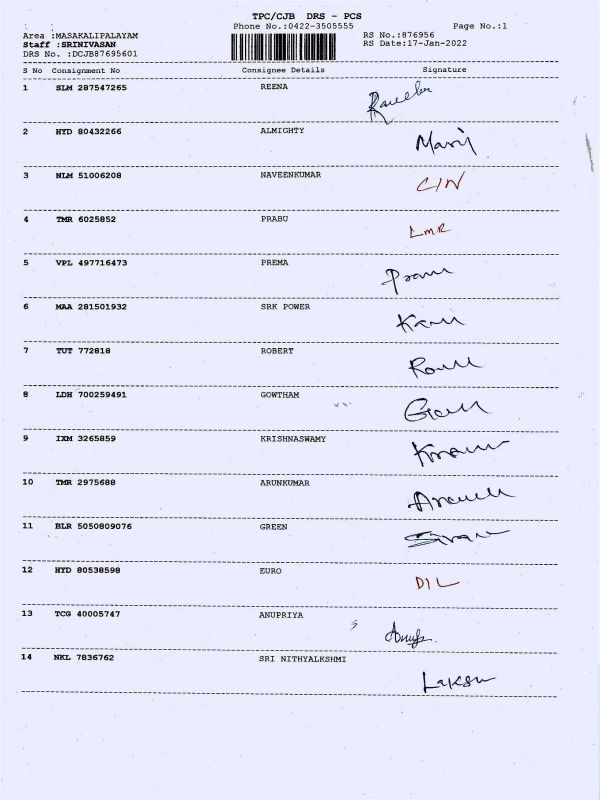 TPC/CJB DRS - PCS
Phone No.:0422-3505555 Page No.:1
Area :MASAKALIPALAYAM RS No.:876956
Staff :SRINIVASAN RS Date:17-Jan-2022
DRS No. :DCJB87695601
S No Consignment No Consignee Details Signature
1 SLM 287547265 REENA
2 HYD 80432266 ALMIGHTY
3 NLM 51006208 NAVEENKUMAR
4 TMR 6025852 PRABU LMR
5 VPL 497716473 PREMA
6 MAA 281501932 SRK POWER
7 TUT 772818 ROBERT
8 LDH 700259491 GOWTHAM
9 IXM 3265859 KRISHNASWAMY
10 TMR 2975688 ARUNKUMAR
11 BLR 5050809076 GREEN
12 HYD 80538598 EURO DIL
13 TCG 40005747 ANUPRIYA
14 NKL 7836762 SRI NITHYALKSHMI